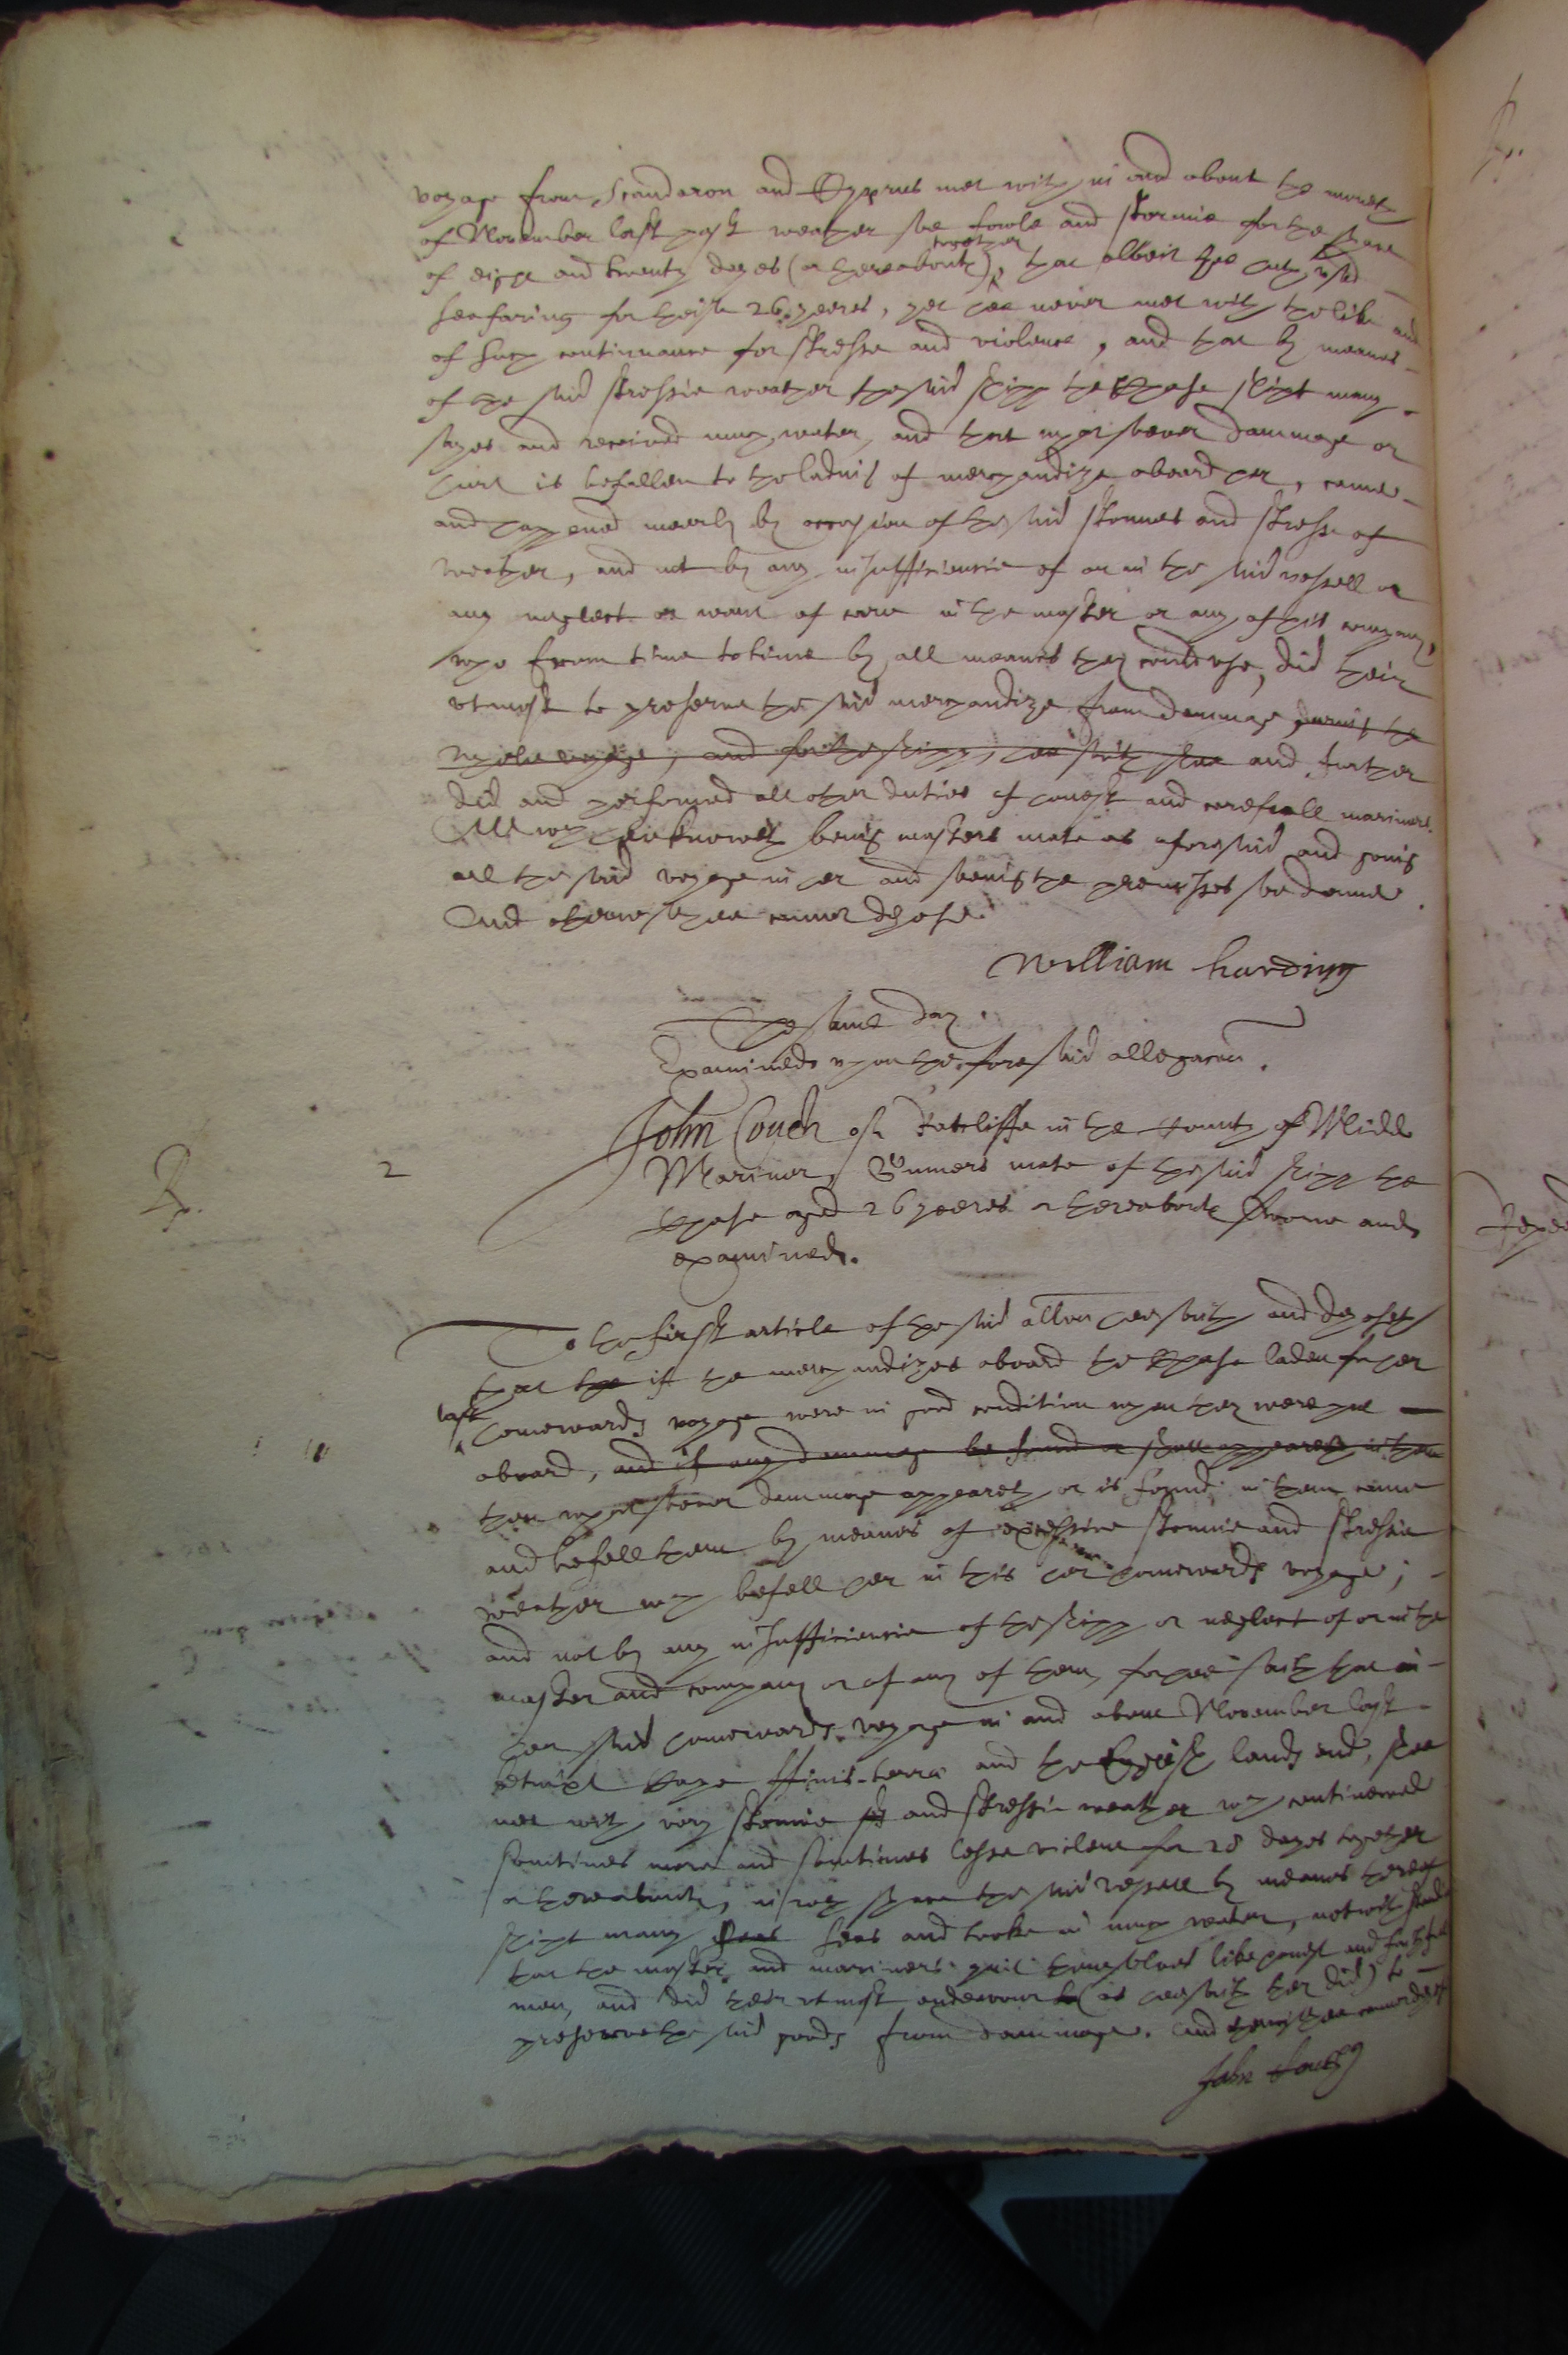 voyage from Scandaron and Cyprus met with in and about the moneth
of November last past weather soe fowle and stormie for the space
of eight and twenty dayes (or thereabouts) together, that albeit hee hath used
seafaring for theise 26 yeeres, yet hee never met with the like and
of such continuance for stresse and violence, and that by meanes
of the said stressie weather the said shipp the Chase shipt many
seyes and received much water, and that whatsoever dammage or
hurt is befallen to the lading of merchandize aboard her, came
and happened meerly by occasion of the said stormes and stresse of
weather, and not by any insufficiencie of or in the said vessell or
any neglect or want of care in the master or any of his company,
who from time to time by all meanes they could use, did their
utmost to preserve the said merchandize from dammage during the
whole voyage, and for the shipp, hee saith shee and further
did and performed all other duties of honest and carefull mariners.
All which hee knoweth being masters mate as aforesaid and going
all the said voyage in her and seeing the premisses soe donne.
And otherwise hee cannot depose.
William harding
The same day.
Examined upon the foresaid allegacon.
R.
2
John Couch of Ratcliffe in the County of Midd
Mariner, Gunners mate of the said shipp the
Chase aged 26 yeeres or thereabouts sworne and
examined.
To the first article of the said allon hee saith and deposeth
that the if the merchandizes aboard the Chase laden for her
last
homewards voyage were in good condition when they were put
aboard, and if any dammage be found or shall appeareth in them
then whatsoever dammage appeareth or is found in them came
and befell them by meanes of excessive stormie and stressie
weather which befell her in this her homewards voyage;
and not by any insufficiencie of the shipp or neglect of or in the
master and company or of any of them, for hee saith that in
her said homewards voyage in and about November last
betwixt Cape Finis-terra and the English lands end, shee
met with very stormie and stressie weather which continewed
somtimes more and somtimes lesse violent for 28 dayes together
or thereabouts, in which space the said vessell by meanes thereof
shipt many seas and tooke in much water, notwithstanding
that the master and mariners quit themselves like honest and faithfull
men, and did their utmost endeavour (as hee saith they did) to
preserve the said goods from dammage. And otherwise hee cannot depose
John Couch